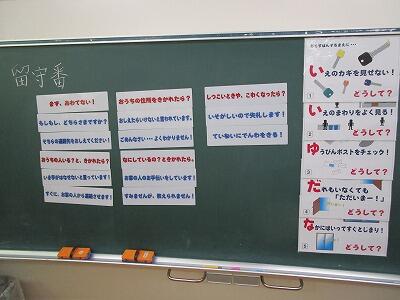 留守番
まず、あわてない!
もしもし、どちらさまですか?
そちらの連絡先をおしえてください!
おうちの人いる?と、きかれたら?
いま手がはなせないと言っています!
すぐに、お家の人から連絡させます!
おうちの住所をきかれたら?
おしえたらいけないと言われています。
ごめんなさい・・・よくわかりません!
なにしているの?ときかれたら。
お家の人のお手伝いをしています!
すみませんが、教えられません!
しつこいときや、こわくなったら?
いそがしいので失礼します!
ていねいにでんわをきる!
おるすばんするまえに・・・
いえのカギを見せない!
① どうして?
いえのまわりをよく見る!
② どうして?
ゆうびんポストをチェック!
③ どうして?
だれもいなくても
「ただいまー!」
④ どうして?
なかにはいってすぐとじまり!
⑤ どうして?